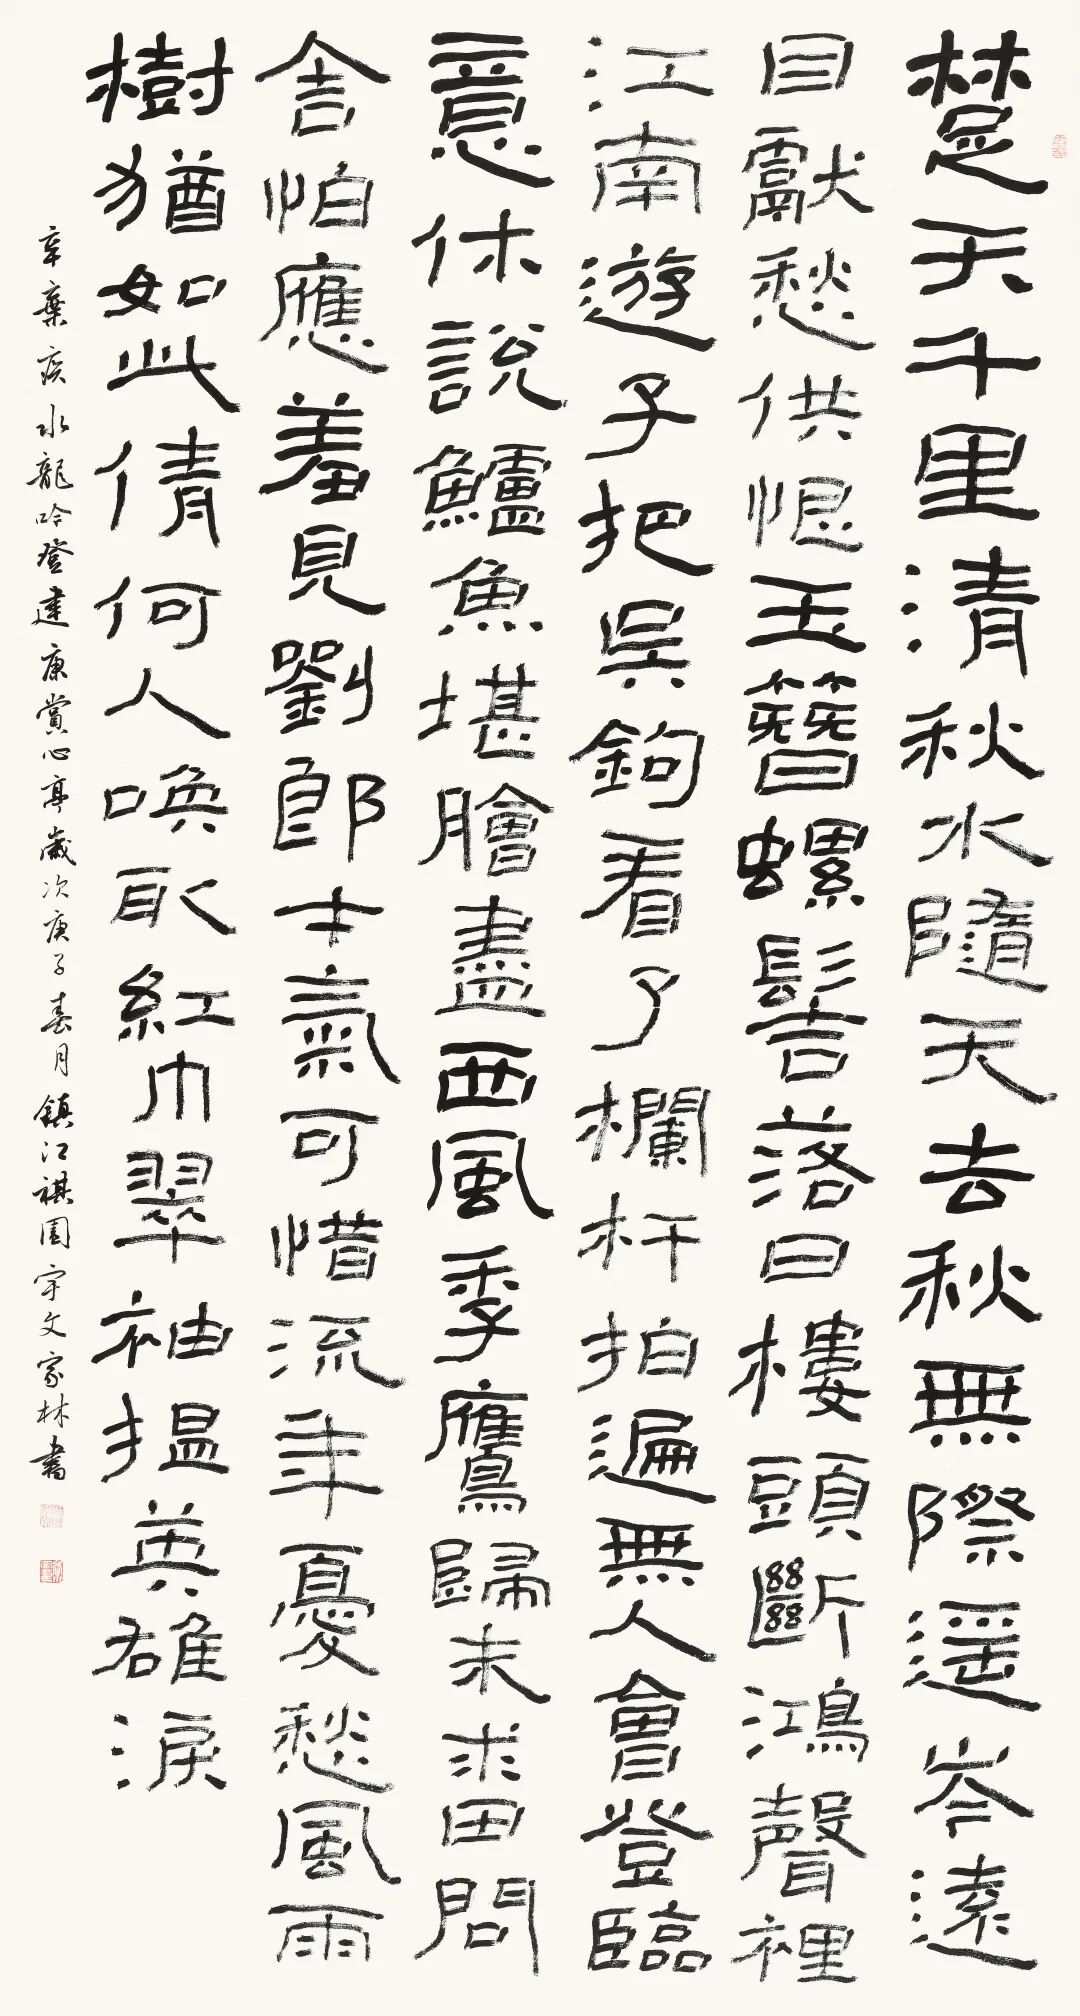 楚天千里清秋水隨天去秋無際遥岑遠
目獻愁供恨玉簪螺髻落日樓頭斷鴻聲裡
江南遊子把吳鉤看了欄杆拍遍無人會登臨
意休說鱸魚堪膾盡西風季鷹歸未求田問
舍怕應羞見劉郎才氣可惜流年憂愁風雨
樹猶如此倩何人喚取紅巾翠袖搵英雄淚
辛棄疾水龍吟登建康賞心亭歲次庚子春月鎮江祺園宇文家林書